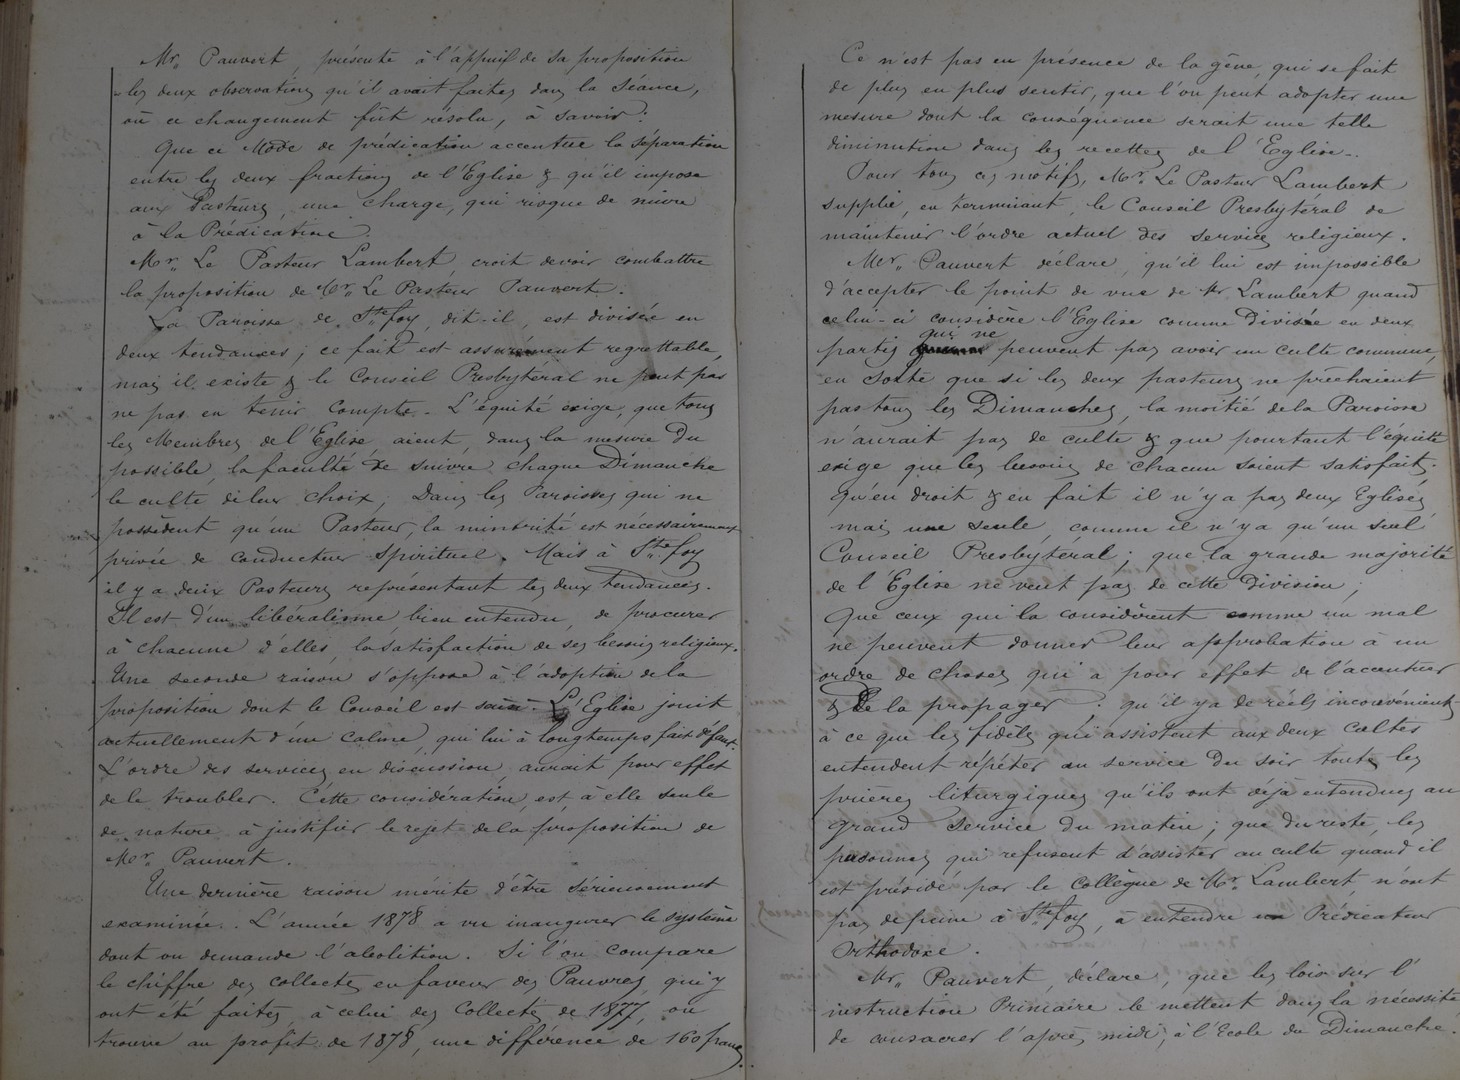 Mr. Pauvert, présente à l'appuif de sa proposition
les deux observations qu'il avait faites dans la Séance,
où ce changement fût résolu, à savoir:
Que ce Mode de prédication accentue la séparation
entre les deux fractions de l'Eglise & qu'il impose
aux Pasteurs, une charge, qui risque de nuire
à la Prédication.
Mr. Le Pasteur Lambert, croit devoir combattre
la proposition de Mr. Le Pasteur Pauvert.
La Paroisse de Ste foy, dit-il, est divisée en
deux tendances; ce fait est assurément regrettable,
mais il existe & le Conseil Presbytéral ne peut pas
ne pas en tenir Compte. L'équité exige, que tous
les Membres de l'Eglise aient, dans la mesure du
possible, la faculté de suivre chaque Dimanche
le culte de leur choix; Dans les Paroisses qui ne
possèdent qu'un Pasteur, la minorité est nécessairement
privée de conducteur spirituel. Mais à Ste foy
il y a deux Pasteurs représentant les deux tendances.
Il est d'un libéralisme bien entendu, de procurer
à chacune d'elles la satisfaction de ses besoins religieux.
Une seconde raison s'oppose à l'adoption de la
proposition dont le Conseil est saisi. L'Eglise jouit
actuellement d'un calme, qui lui à longtemps fait défaut.
L'ordre des services en discussion, aurait pour effet
de le troubler. Cette considération, est, à elle seule
de nature à justifier le rejet de la proposition de
Mr. Pauvert.
Une dernière raison mérite d'être sérieusement
examinée. L'année 1878 a vu inaugurer le système
dont on demande l'abolition. Si l'on compare
le chiffre des collectes en faveur des Pauvres, qui y
ont été faites, à celui des Collectes de 1877, on
trouve au profit de 1878, une différence de 160 francs.
Ce n'est pas en présence de la gêne, qui se fait
de plus en plus sentir, que l'on peut adopter une
mesure dont la conséquence serait une telle
diminution dans les recettes de l'Eglise.
Pour tous ces motifs, Mr. Le Pasteur Lambert
supplie, en terminant, le Conseil Presbytéral de
maintenir l'ordre actuel des services religieux.
Mr. Pauvert déclare, qu'il lui est impossible
d'accepter le point de vue de Mr Lambert quand
celui-ci considère l'Eglise comme divisée en deux
partis qui ne peuvent pas avoir un culte commun,
en sorte que si les deux pasteurs ne prêchaient
pas tous les Dimanches, la moitié de la Paroisse
n'aurait pas de culte & que pourtant l'équité
exige que les besoins de chacun soient satisfaits.
Qu'en droit & en fait il n'y a pas deux Eglises
mais une seule, comme il n'y a qu'un seul
Conseil Presbytéral; que la grande majorité
de l'Eglise ne veut pas de cette division;
Que ceux qui la considèrent comme un mal
ne peuvent donner leur approbation à un
ordre de choses qui a pour effet de l'accentuer
& de la propager. qu'il y a de réels inconvénients
à ce que les fidèles qui assistent aux deux cultes
entendent répéter au service du soir toutes les
prières liturgiques qu'ils ont déjà entendues au
grand service du matin; que du reste, les
personnes qui refusent d'assister au culte quand il
est présidé par le collègue de Mr. Lambert, n'ont
pas de peine à Ste foy, à entendre un Prédicateur
Orthodoxe.
Mr. Pauvert, déclare, que les lois sur l'
instruction Primaire le mettent dans la nécessité
de consacrer l'après midi, à l'Ecole du Dimanche.